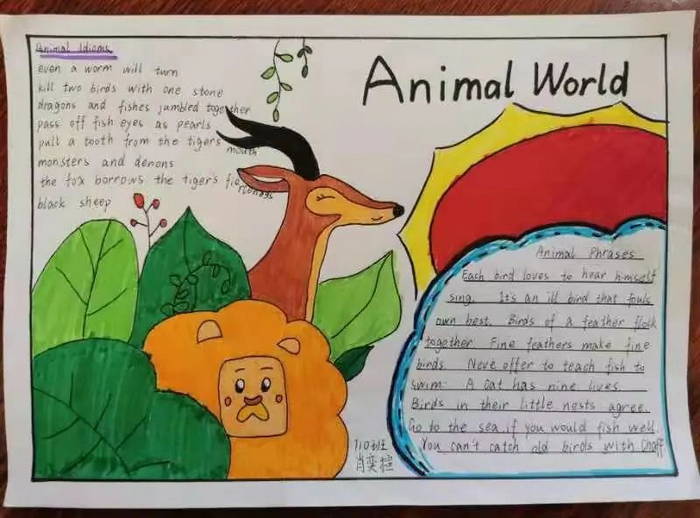 Animal World
Animal Idioms
even a worm will turn
kill two birds with one stone
dragons and fishes jumbled together
pass off fish eyes as pearls
pull a tooth from the tigers mouth
monsters and denons
the fox borrows the tigers
black sheep
Animal Phrases
Each bird loves to hear himself
sing. It's an ill bird that fouls
own best. Birds of a feather flock
together Fine feathers make fine
birds. Neve offer to teach fish to
swim. A cat has nine lives.
Birds in their little nests agree.
Go to the sea if you would fish well.
You can't catch old birds with Chaff
710班
肖奕萱